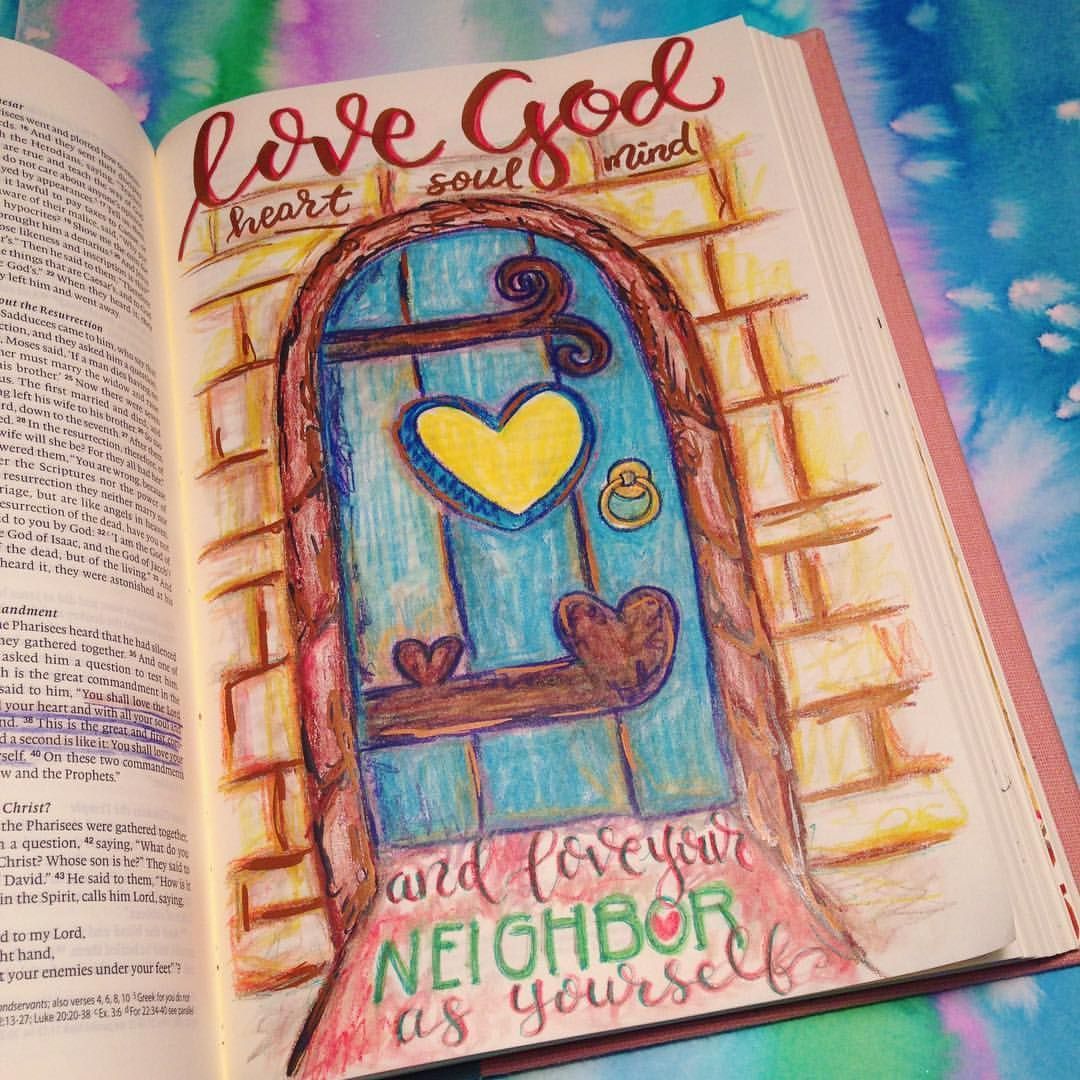 risees went and plotted how
And they sent their
h the Herodians, saying,
are true and teach the way of God
do not care about anyone's
yed by appearances. 17 Tell
it lawful to pay taxes to Caesar,
aware of their malice, said, "Why
hypocrites? 19 Show me the coin
brought him a denarius. 20 And
ose likeness and inscription is this?"
r's." Then he said to them, "Therefore
he things that are Caesar's, and to God
e God's." 22 When they heard it, they
y left him and went away.
out the Resurrection
Sadducees came to him, who say
ction, and they asked him a question,
Moses said, 'If a man dies having
her must marry the widow and
his brother.' 25 Now there were seven
us. The first married and died,
ng left his wife to his brother. 26 So
rd, down to the seventh. 27 After
ed. 28 In the resurrection, therefore, of
wife will she be? For they all had her."
wered them, "You are wrong, because
er the Scriptures nor the power of
esurrection they neither marry nor
riage, but are like angels in heaven.
esurrection of the dead, have you not
id to you by God: 32 'I am the God of
e God of Isaac, and the God of Jacob'?
f the dead, but of the living." 33 And
heard it, they were astonished at his
mandment
he Pharisees heard that he had silenced
hey gathered together. 35 And one of
asked him a question to test him.
h is the great commandment in the
said to him, "You shall love the Lord
your heart and with all your soul and
nd. 38 This is the great and first
d a second is like it: You shall love your
rself. 40 On these two commandments
w and the Prophets."
Christ?
the Pharisees were gathered together,
m a question, 42 saying, "What do you
Christ? Whose son is he?" They said to
David." 43 He said to them, "How is it
in the Spirit, calls him Lord, saying,
d to my Lord,
ght hand,
t your enemies under your feet"'?
ondservants; also verses 4, 6, 8, 10 3 Greek for you do not
2:13-27; Luke 20:20-38 c Ex. 3:6 d For 22:34-40 see parallel
love God
heart soul mind
and love your
NEIGHBOR
as yourself